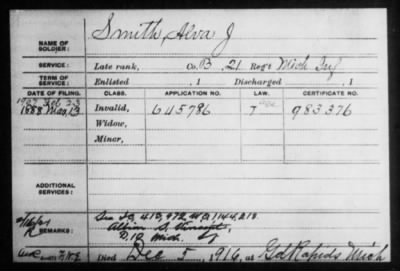 Smith, Alva J
NAME OF SOLDIER:
SERVICE: Late rank, Co. B, 21 Reg't Mich Inf
TERM OF SERVICE: Enlisted , 1 Discharged , 1
DATE OF FILING. CLASS. APPLICATION NO. LAW. CERTIFICATE NO.
1888 Invalid, 645786 983376
Widow,
Minor,
ADDITIONAL SERVICES:
REMARKS:
Mich.
Died Dec 5, 1916, at Gd Rapids Mich